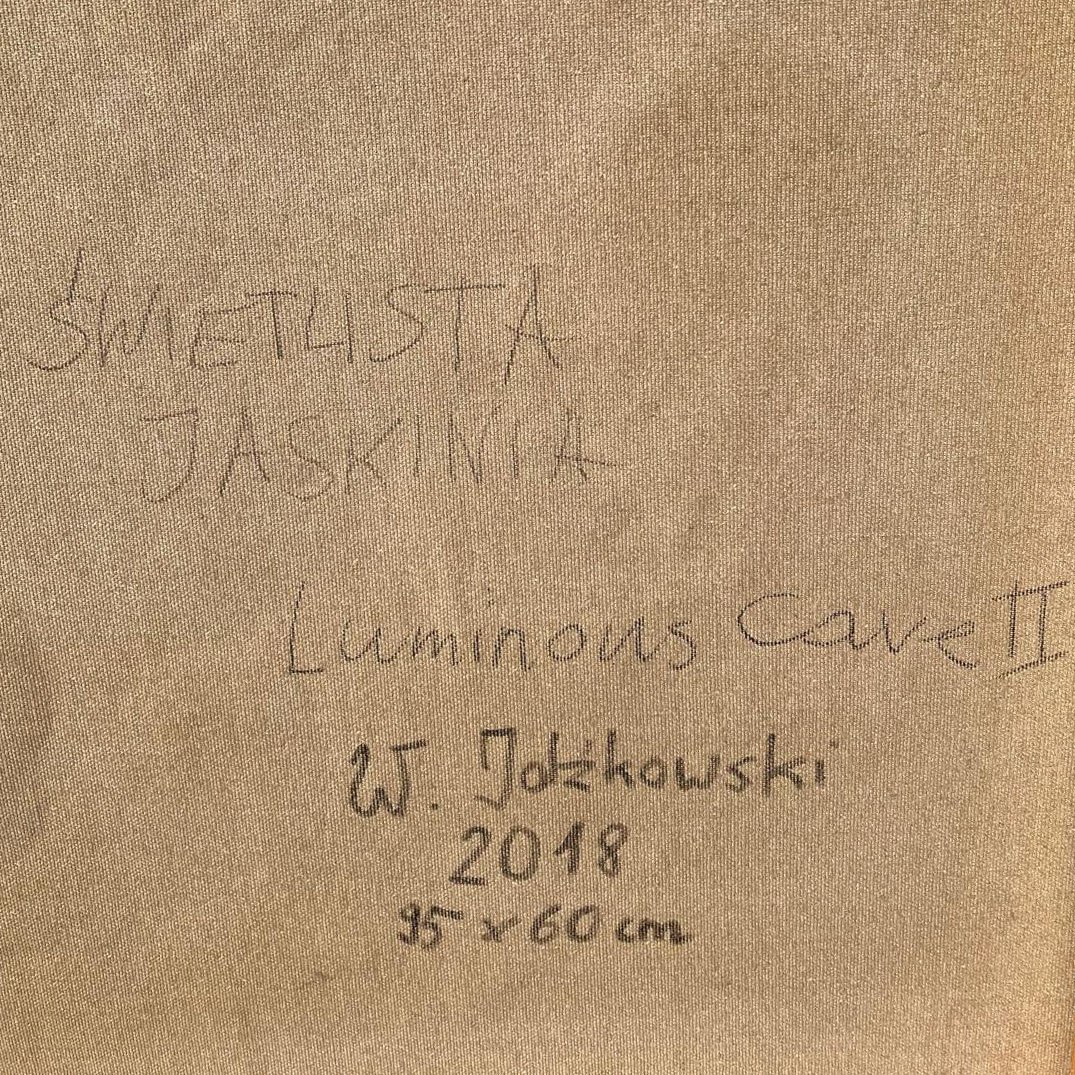 ŚWIETLISTA
JASKINIA
Luminous Cave II
W.
2018
95 x 60 cm